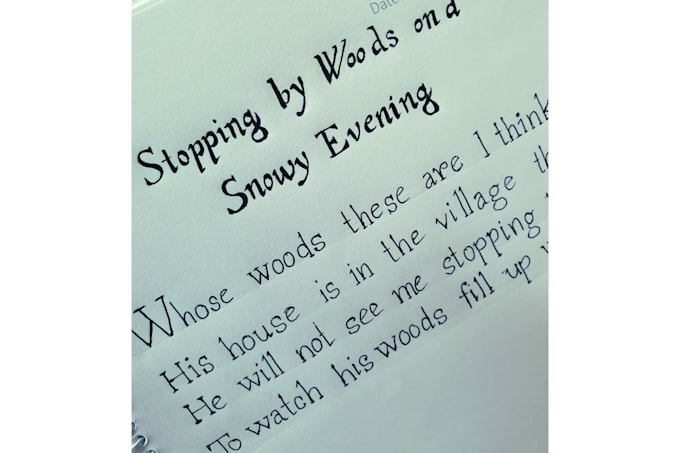 Date
Stopping by Woods on a
Snowy Evening
Whose woods these are I think
His house is in the village
He will not see me stopping
To watch his woods fill up